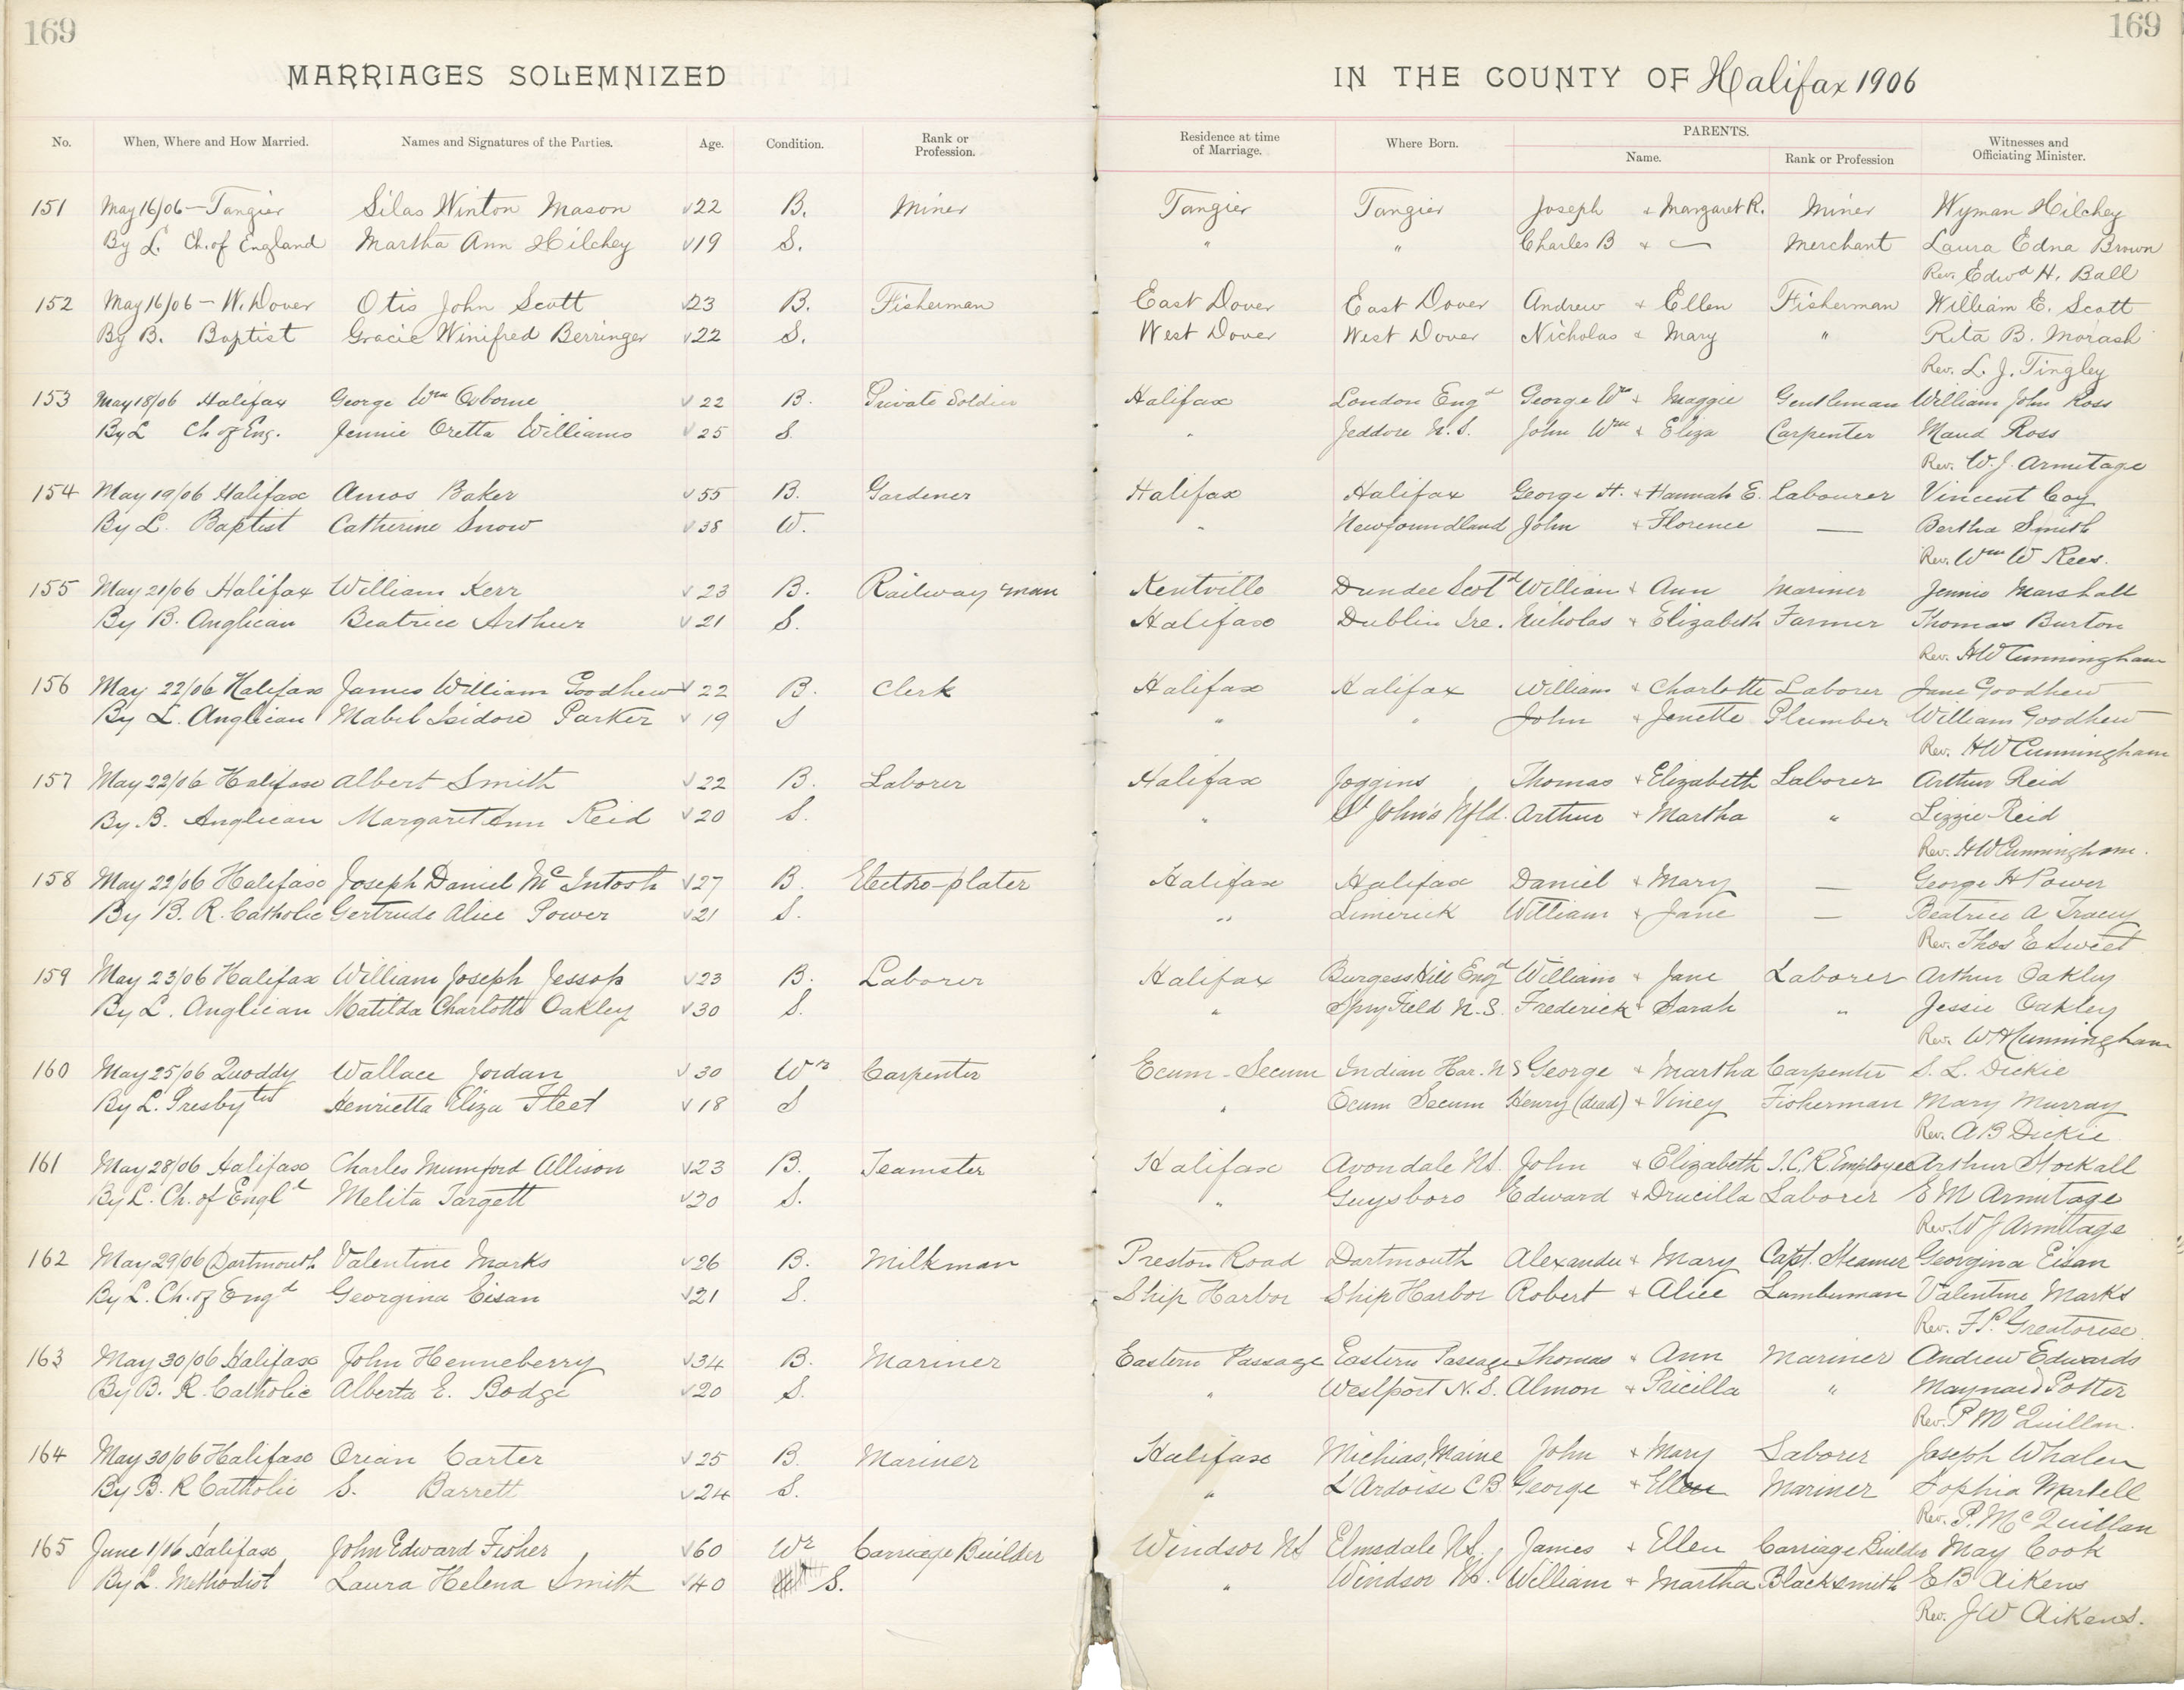 169
169
MARRIAGES SOLEMNIZED IN THE COUNTY OF Halifax 1906
No. When, Where and How Married. Names and Signatures of the Parties. Age. Condition. Rank or Profession. Residence at time of Marriage. Where Born. PARENTS. Name. Rank or Profession Witnesses and Officiating Minister.
151 May 16/06 — Tangier Silas Winton Mason √22 B. Miner Tangier Tangier Joseph & Margaret R. Miner Wyman Hilchey
By L. Ch. of England Martha Ann Hilchey √19 S. " " Charles B & — Merchant Laura Edna Brown
Rev. Edwd H. Ball
152 May 16/06 — W. Dover Otis John Scott √23 B. Fisherman East Dover East Dover Andrew & Ellen Fisherman William E. Scott
By B. Baptist Gracie Winifred Berringer √22 S. West Dover West Dover Nicholas & Mary " Rita B. Morash
Rev. L. J. Tingley
153 May 18/06 Halifax George Wm Osborne √22 B. Private Soldier Halifax London Engd George Wm & Maggie Gentleman William John Ross
By L Ch of Eng. Jennie Oretta Williams √25 S. " Jeddore N.S. John Wm & Eliza Carpenter Maud Ross
Rev. W. J. Armitage
154 May 19/06 Halifax Amos Baker √55 B. Gardener Halifax Halifax George H. & Hannah E. Labourer Vincent Coy
By L. Baptist Catherine Snow √38 W. " Newfoundland John & Florence — Bertha Smith
Rev. Wm W Rees.
155 May 21/06 Halifax William Kerr √23 B. Railway man Kentville Dundee Scotd William & Ann Mariner Jennie Marshall
By B. Anglican Beatrice Arthur √21 S. Halifax Dublin Ire. Nicholas & Elizabeth Farmer Thomas Burton
Rev. HW Cunningham
156 May 22/06 Halifax James William Goodhew √22 B. Clerk Halifax Halifax William & Charlotte Laborer Jane Goodhew
By L. Anglican Mabel Isidore Parker √19 S " " John & Jenette Plumber William Goodhew
Rev. HW Cunningham
157 May 22/06 Halifax Albert Smith √22 B. Laborer Halifax Joggins Thomas & Elizabeth Laborer Arthur Reid
By B. Anglican Margaret Ann Reid √20 S. " St John's Nfld. Arthur & Martha " Lizzie Reid
Rev. HW Cunningham.
158 May 22/06 Halifax Joseph Daniel McIntosh √27 B. Electro-plater Halifax Halifax Daniel & Mary — George H Power
By B. R. Catholic Gertrude Alice Power √21 S. " Limerick William & Jane — Beatrice A Tracey
Rev. Thos E Sweet
159 May 23/06 Halifax William Joseph Jessop √23 B. Laborer Halifax Burgess Hill Engd William & Jane Laborer Arthur Oakley
By L. Anglican Matilda Charlotte Oakley √30 S. " Spryfield N.S. Frederick & Sarah " Jessie Oakley
Rev. WH Cunningham
160 May 25/06 Quoddy Wallace Jordan √30 Wr Carpenter Ecum-Secum Indian Har. NS George & Martha Carpenter S. L. Dickie
By L. Presbyter Henrietta Eliza Fleet √18 S " Ecum Secum Henry (dead) & Viney Fisherman Mary Murray
Rev. A B Dickie
161 May 28/06 Halifax Charles Mumford Allison √23 B. Teamster Halifax Avondale NS. John & Elizabeth I.C.R. Employee Arthur Stockall
By L. Ch. of Engld Melita Targett √20 S. " Guysboro Edward & Drucilla Laborer E M Armitage
Rev. W J Armitage
162 May 29/06 Dartmouth Valentine Marks √26 B. Milkman Preston Road Dartmouth Alexander & Mary Capt. Steamer Georgina Eisan
By L. Ch. of Engd Georgina Eisan √21 S. Ship Harbor Ship Harbor Robert & Alice Lumberman Valentine Marks
Rev. F. P. Greatorex.
163 May 30/06 Halifax John Henneberry √34 B. Mariner Eastern Passage Eastern Passage Thomas & Ann Mariner Andrew Edwards
By B. R. Catholic Alberta E. Bodge √20 S. " Westport N.S. Almon & Pricilla " Maynard Potter
Rev. P McQuillan.
164 May 30/06 Halifax Orian Carter √25 B. Mariner Halifax Michias, Maine John & Mary Laborer Joseph Whalen
By B. R Catholic S. Barrett √24 S. " L'Ardoise CB George & Ellen Mariner Sophia Martell
Rev. P. McQuillan
165 June 1/06 Halifax John Edward Fisher √60 Wr Carriage Builder Windsor NS Elmsdale NS. James & Ellen Carriage Builder May Cook
By L. Methodist Laura Helena Smith √40 S. " Windsor NS. William & Martha Blacksmith E B Aikens
Rev. J W Aikens.